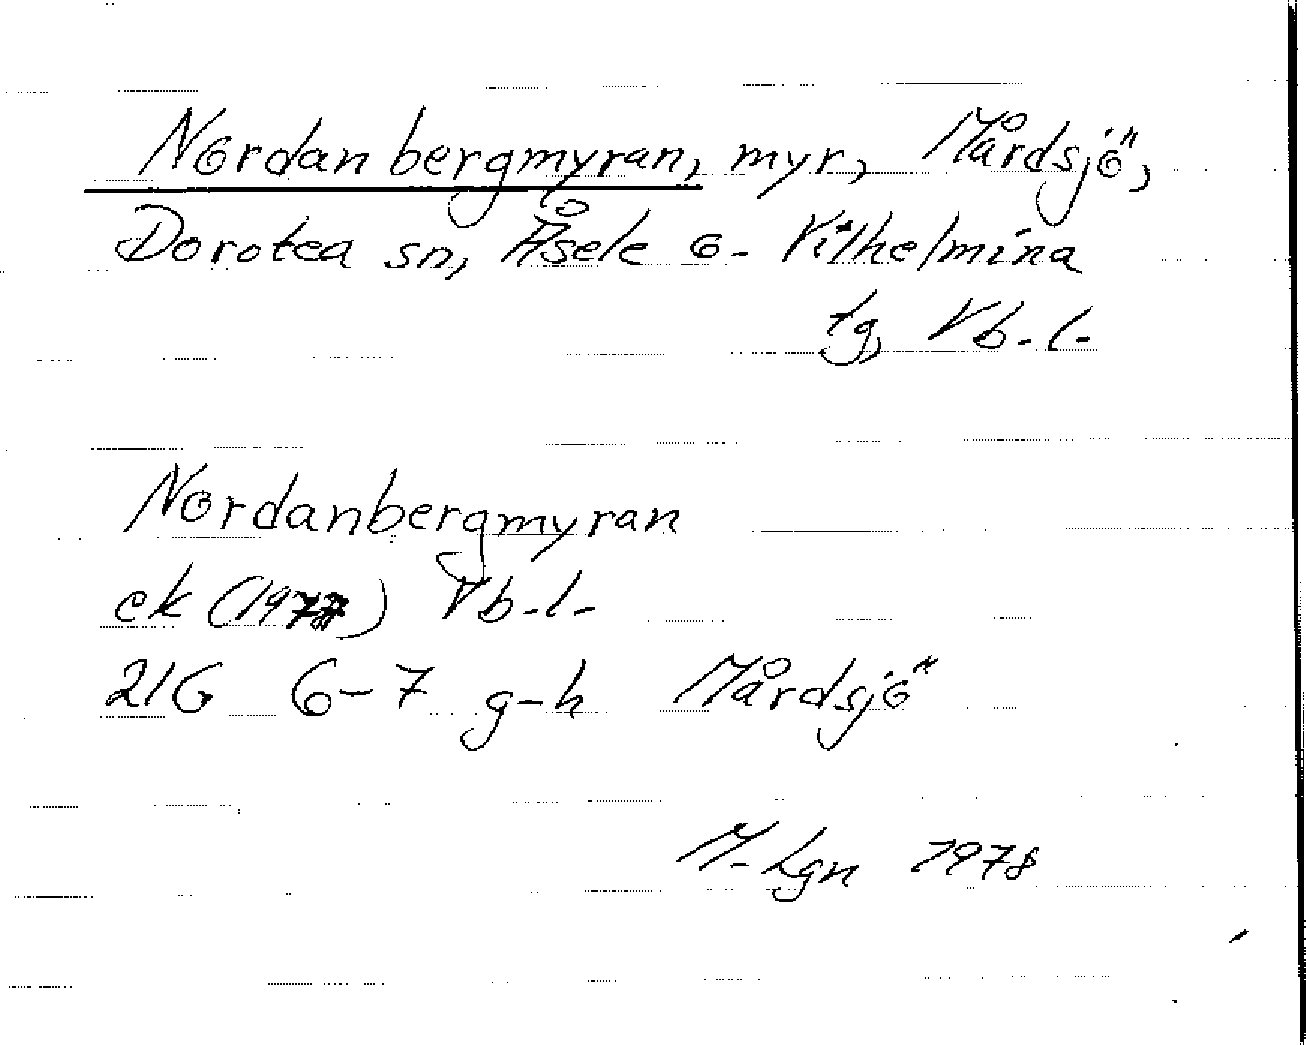 Nordanbergmyran, myr, Mårdsjö,
Dorotea sn, Åsele o. Vilhelmina
tg, Vb.l.
Nordanbergmyran
ek (1977) Vb.l.
21G 6-7 g-h Mårdsjö
M. Lgn 1978